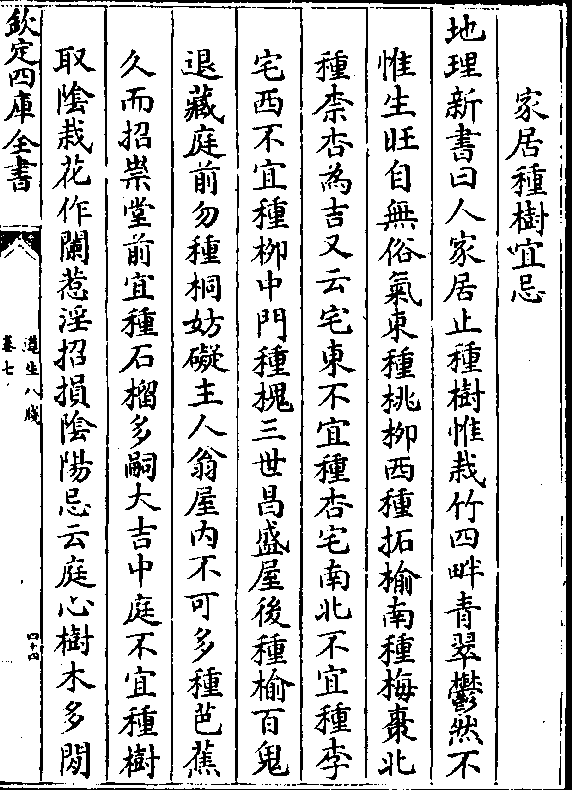 家居種樹宜忌
地理新書曰人家居止種樹惟栽竹四畔青翠鬱然不
惟生旺自無俗氣東種桃柳西種拓榆南種梅棗北
種柰杏為吉又云宅東不宜種杏宅南北不宜種李
宅西不宜種柳中門種槐三世昌盛屋後種榆百鬼
退藏庭前勿種桐妨礙主人翁屋内不可多種芭蕉
久而招祟堂前宜種石榴多嗣大吉中庭不宜種樹
取陰栽花作闌惹淫招損陰陽忌云庭心樹木多閒
欽定四庫全書
遵生八牋
卷七
四十四